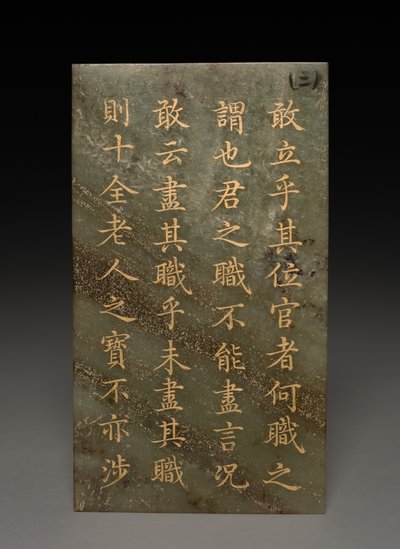 (三)
敢立乎其位官者何職之
謂也君之職不能盡言况
敢云盡其職乎未盡其職
則十全老人之寶不亦涉